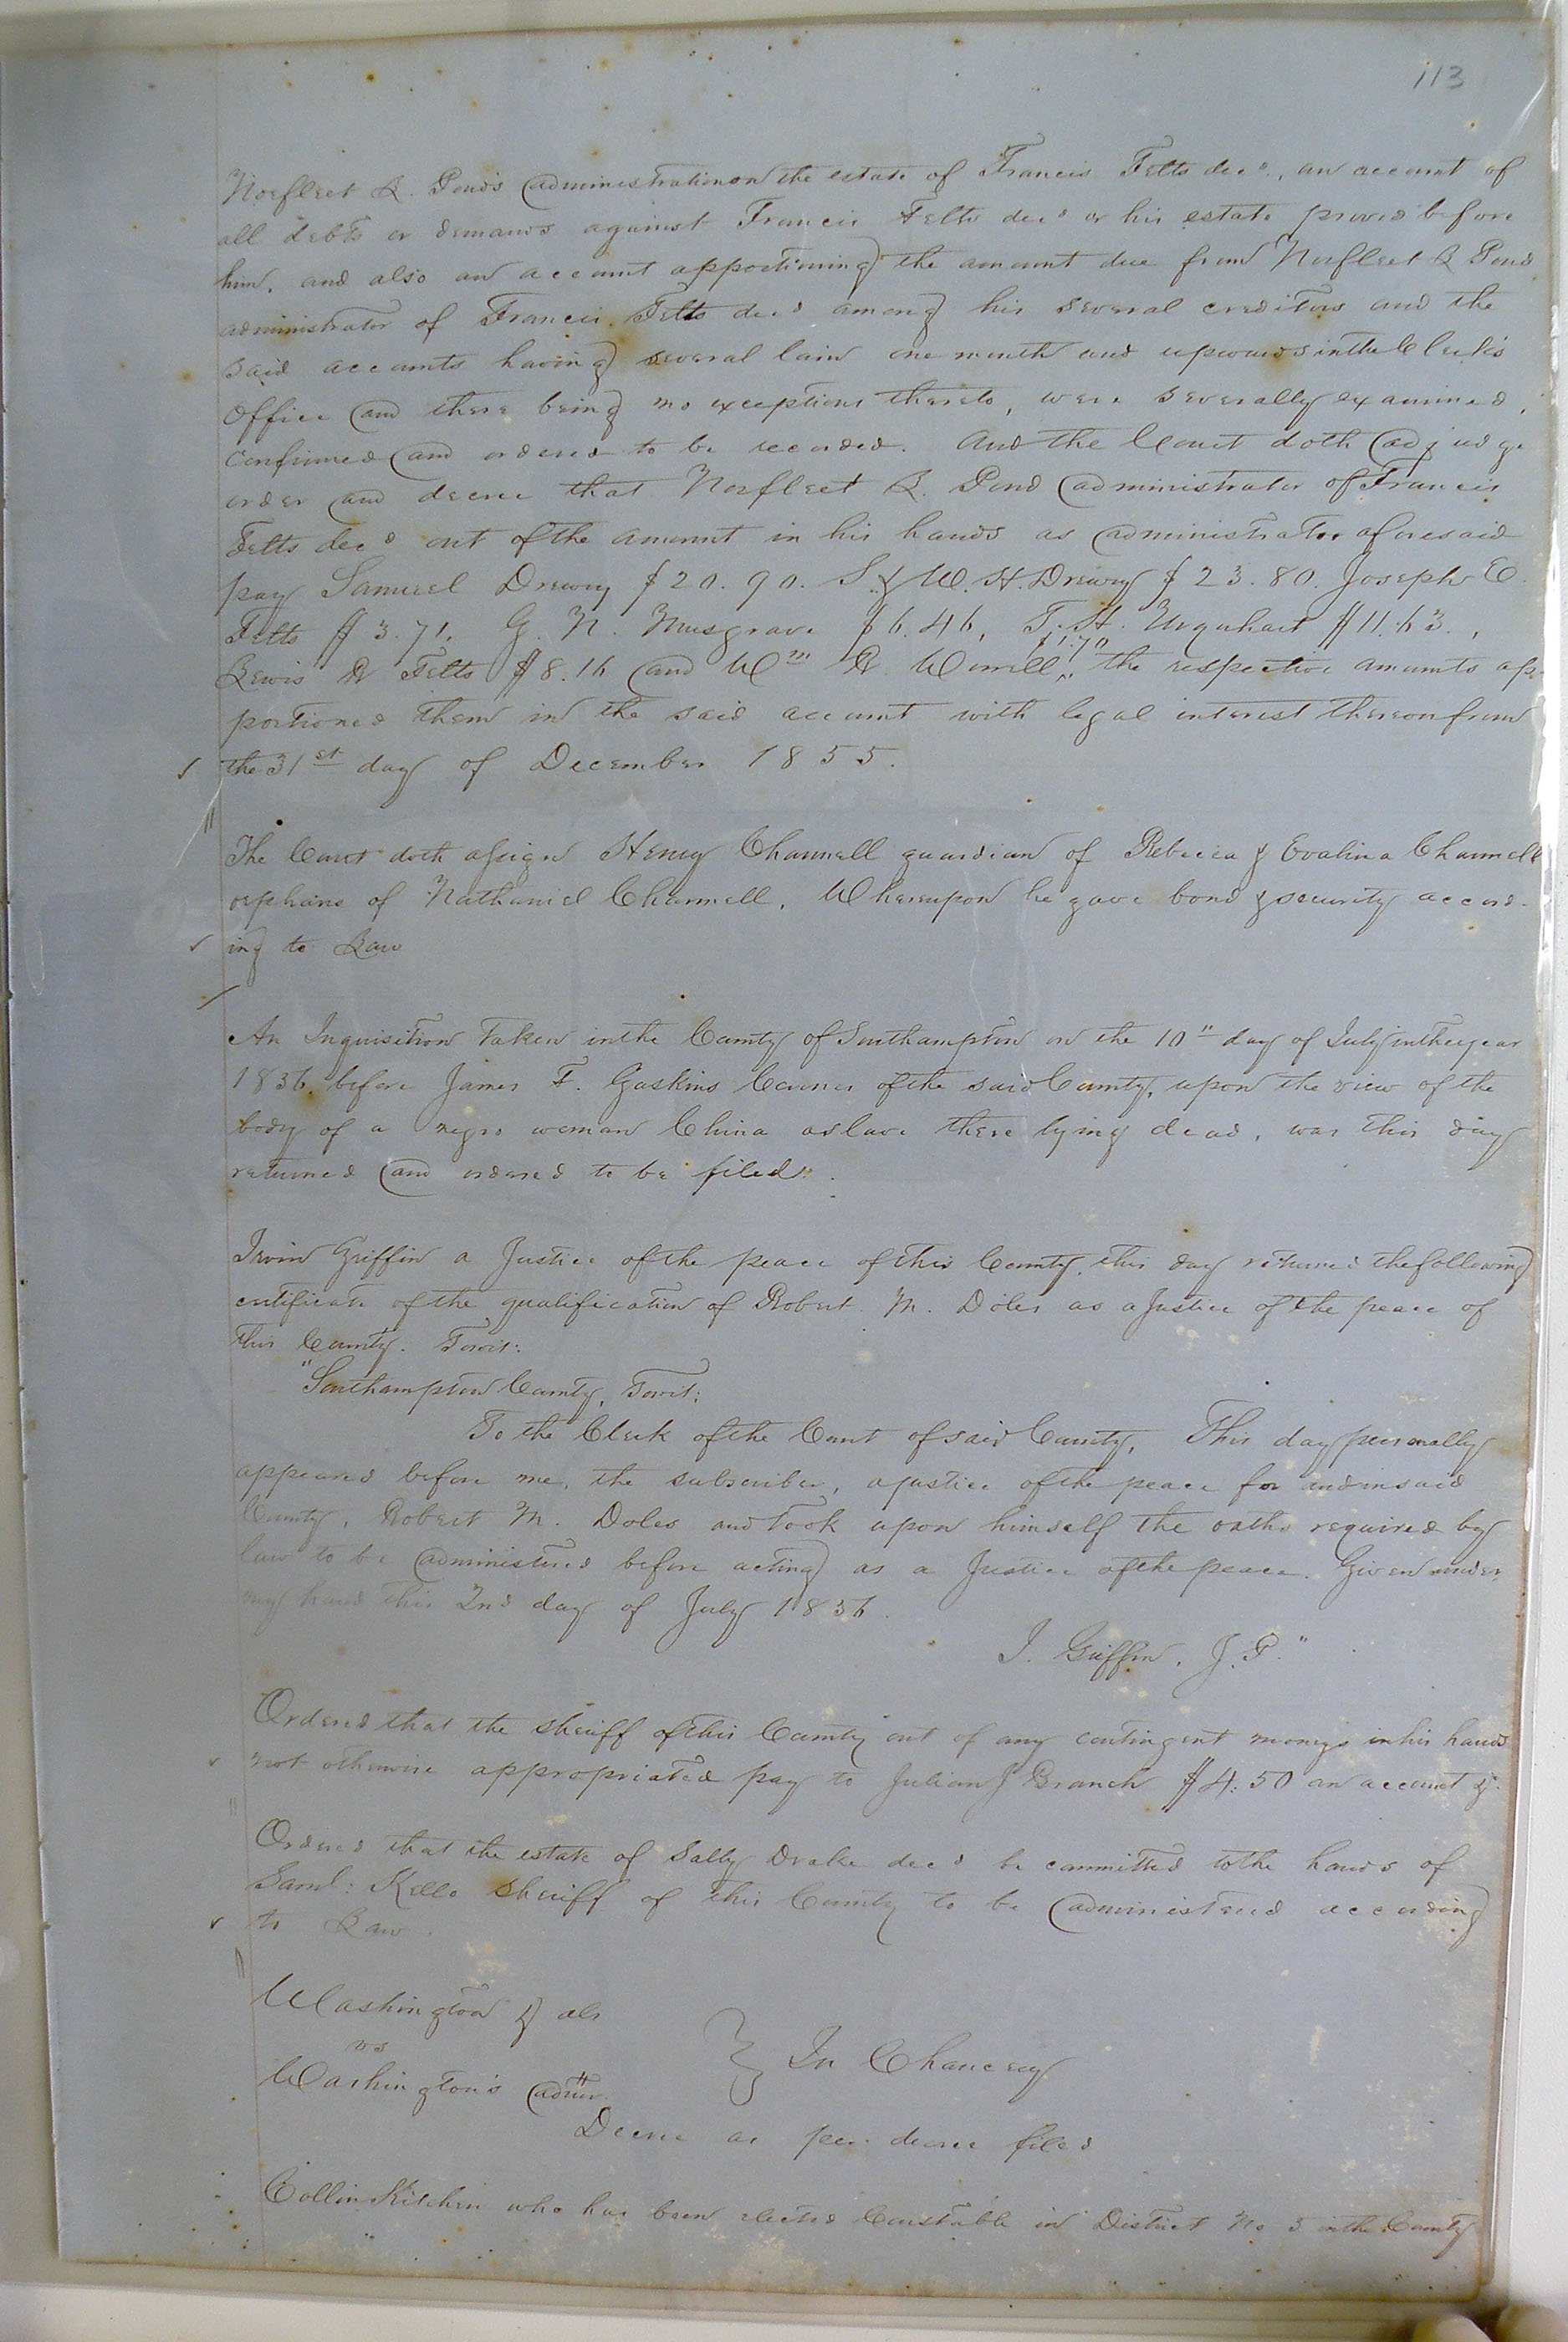 113
Norfleet L. Pond's administration on the estate of Francis Felts decd., an account of
all debts or demands against Francis Felts decd or his estate proved before
him, and also an account apportioning the amount due from Norfleet L Pond
administrator of Francis Felts decd among his several creditors and the
said accounts having several lain one month and upwards in the Clerk's
Office and there being no exceptions thereto, were severally examined,
confirmed and ordered to be recorded. And the Court doth adjudge
order and decree that Norfleet L. Pond administrator of Francis
Felts decd out of the amount in his hands as administrator aforesaid
pay Samuel Drewry $20.90. S. & W. H. Drewry $23.80. Joseph E.
Felts $3.71, G. N. Musgrave $6.46, T. H. Urquhart $11.63.,
$1.70
Lewis R Felts $8.16 and Wm R. Worrell, the respective amounts ap-
portioned them in the said account with legal interest thereon from
the 31st day of December 1855.
The Court doth assign Henry Channell guardian of Rebecca & Evalina Channell
orphans of Nathaniel Channell. Whereupon he gave bond & security accord-
ing to Law
An Inquisition taken in the County of Southampton on the 10" day of July in the year
1856 before James F. Gaskins Coroner of the said County, upon the view of the
body of a negro woman China a slave there lying dead, was this day
returned and ordered to be filed.
Irvin Griffin a Justice of the peace of this County, this day returned the following
certificate of the qualification of Robert M. Doles as a Justice of the peace of
this County. Towit:
"Southampton County, Towit:
To the Clerk of the Court of said County, This day personally
appeared before me, the subscriber, a justice of the peace for and in said
County, Robert M. Doles and took upon himself the oaths required by
law to be administered before acting as a Justice of the peace. Given under
my hand this 2nd day of July 1856.
I. Griffin, J.P."
Ordered that the sheriff of this County out of any contingent moneys in his hands
not otherwise appropriated pay to Julian J Branch $4.50 an account &.
Ordered that the estate of Sally Drake decd be committed to the hands of
Saml: Kello sheriff of this County to be administered according
to Law
Washington & als
vs
Washington's admr.
In Chancery
Decree as per decree filed
Collin Kitchen who has been elected Constable in District No 5 in the County